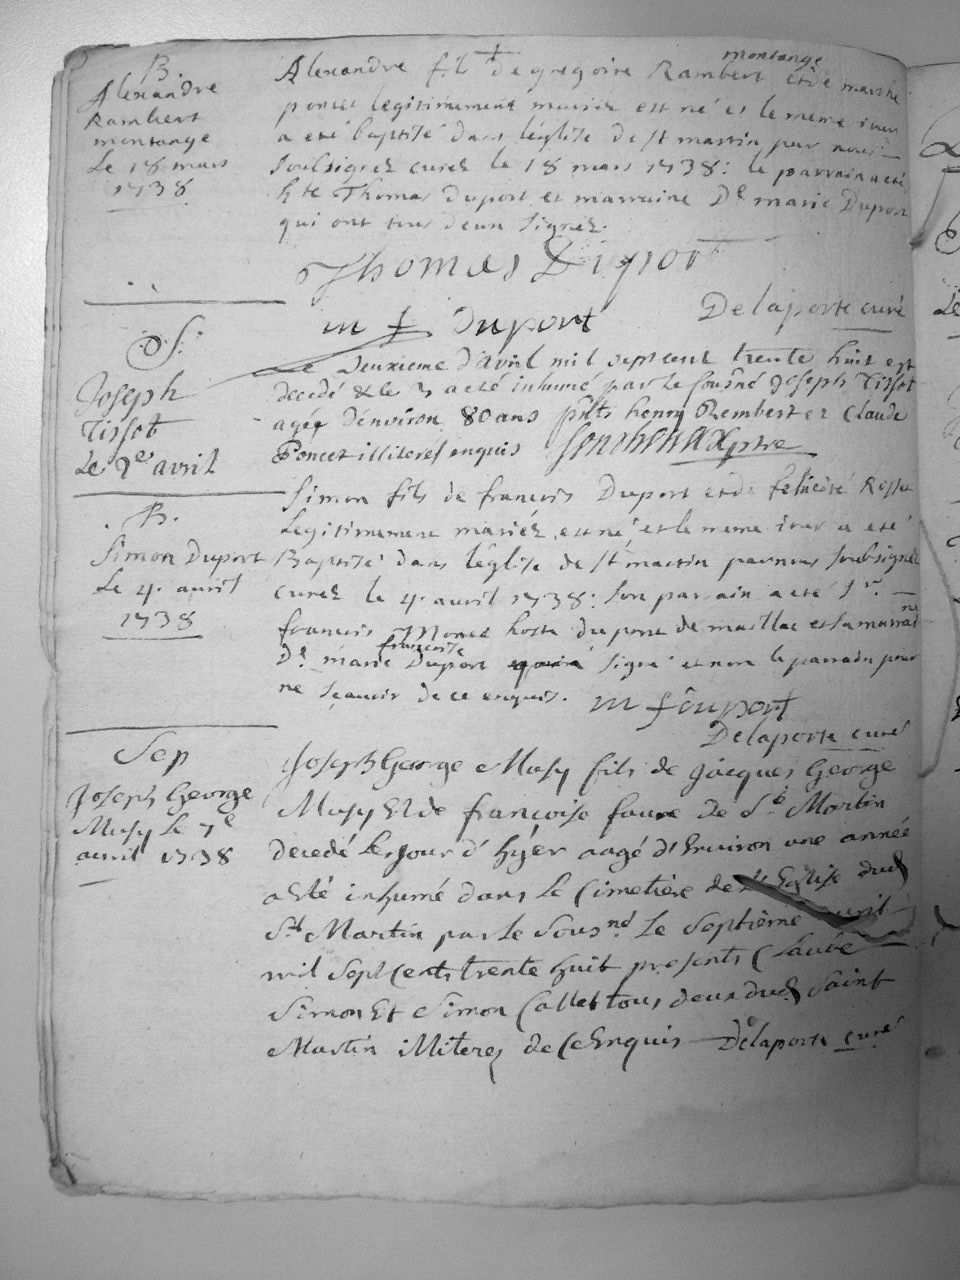 B
Alexandre
Rambert
montange
Le 18 mars
1738
montange
Alexandre fils de gregoire Rambert et de marthe
poncet legitimement mariez est né et le meme iour
a eté baptisé dans l'eglise de st martin par nous
soubsignez curez le 18 mars 1738: le parrain a eté
Thomas Duport et marraine De marie Duport
qui ont tous deux signez.
Thomas Duport
Delaporte curé
m f Duport
S.
Joseph
Tissot
Le 2e avril
Le Deuxieme d'avril mil sept cent trente huit est
decedé & le 3 a eté inhumé par le sousné Joseph Tissot
agée d'environ 80 ans pnts henry Rembert et Claude
Poncet illiteres enquis ptre
B.
Simon Duport
Le 4. avril
1738
Simon fils de francois Duport et de felicité Rosset
Legitimement mariez, est né, et le meme iour a eté
Baptisé dans l'eglise de st martin par nous soubsignez
curez le 4. avril 1738: son parain a eté Sr.
francois Monet hoste du pont de maillac et sa marraine
francoise
De marie Duport signé et non le parrain pour
ne sçauoir de ce enquis. m f duport
Delaporte curé
Sep
Joseph George
Musy le 7e
auril 1738
Joseph George Musy fils de Jacques George
Musy Et de françoise faure de St. Martin
decedé le jour d'hyer aagé d'Environ une année
a Eté inhumé dans le Cimetière de l'Eglise dud
St Martin par le Sousné Le Septième auril
mil Sept Cents trente huit presents Claude
Simon Et Simon Callet tous deux dud Saint
Martin illiteres de Ce Enquis Delaporte curé